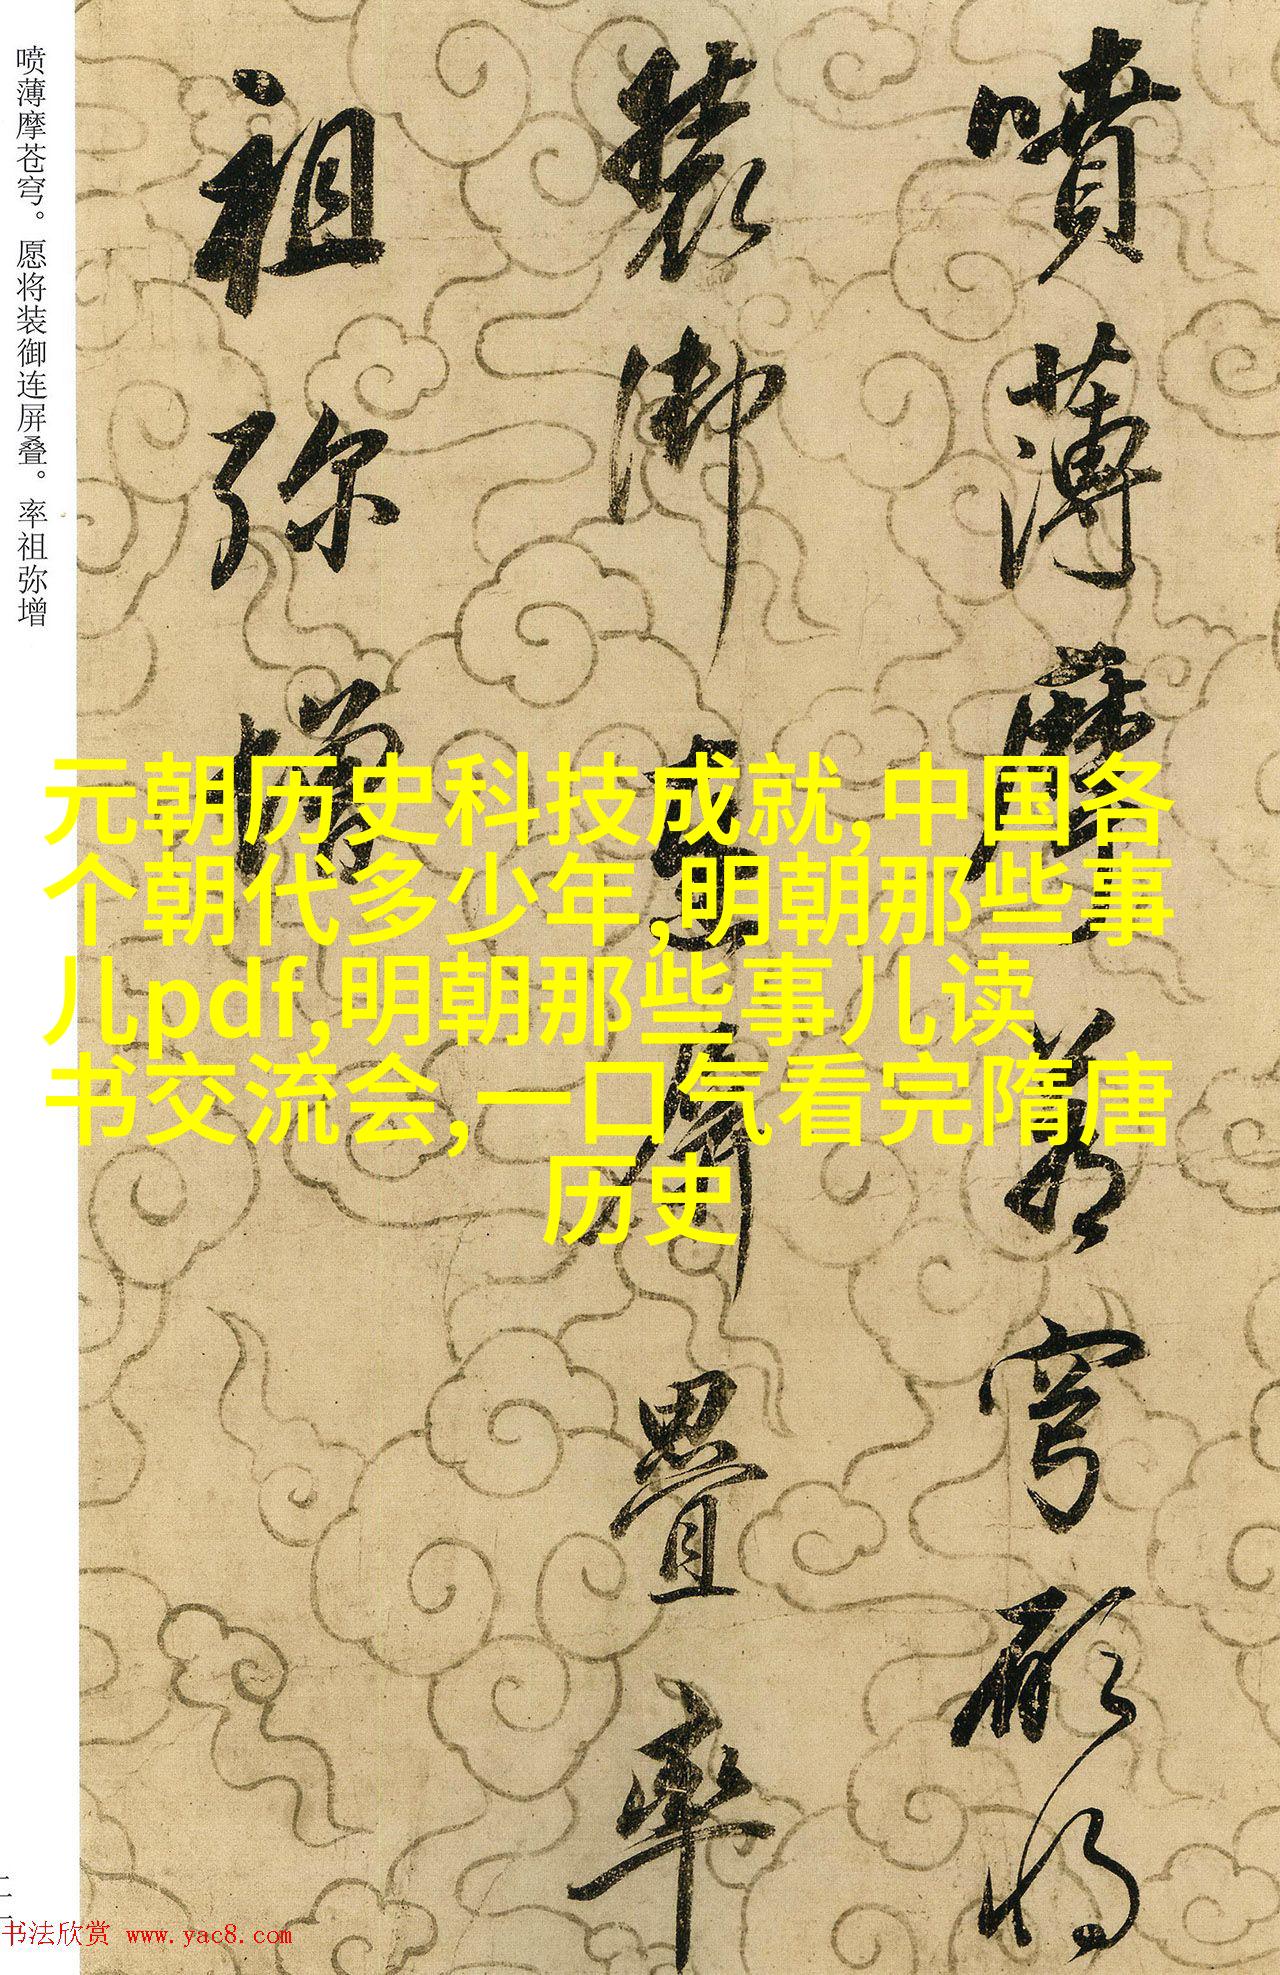 喷薄摩苍穹。愿将装御连屏叠。率祖弥增
噴薄摩蒼穹願將
裝御連屏疊率
祖弥增
元朝历史科技成就,中国各
个朝代多少年,明朝那些事
儿pdf,明朝那些事儿读
书交流会,一口气看完隋唐
历史
二
书法欣赏 www.yac8.com